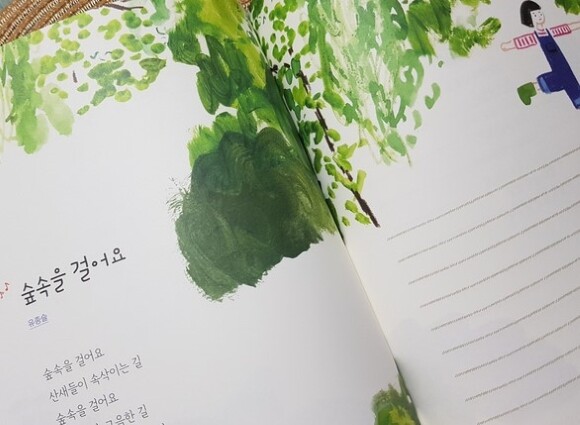 숲속을 걸어요
유종슬
숲속을 걸어요
산새들이 속삭이는 길
숲속을 걸어요
그윽한 길